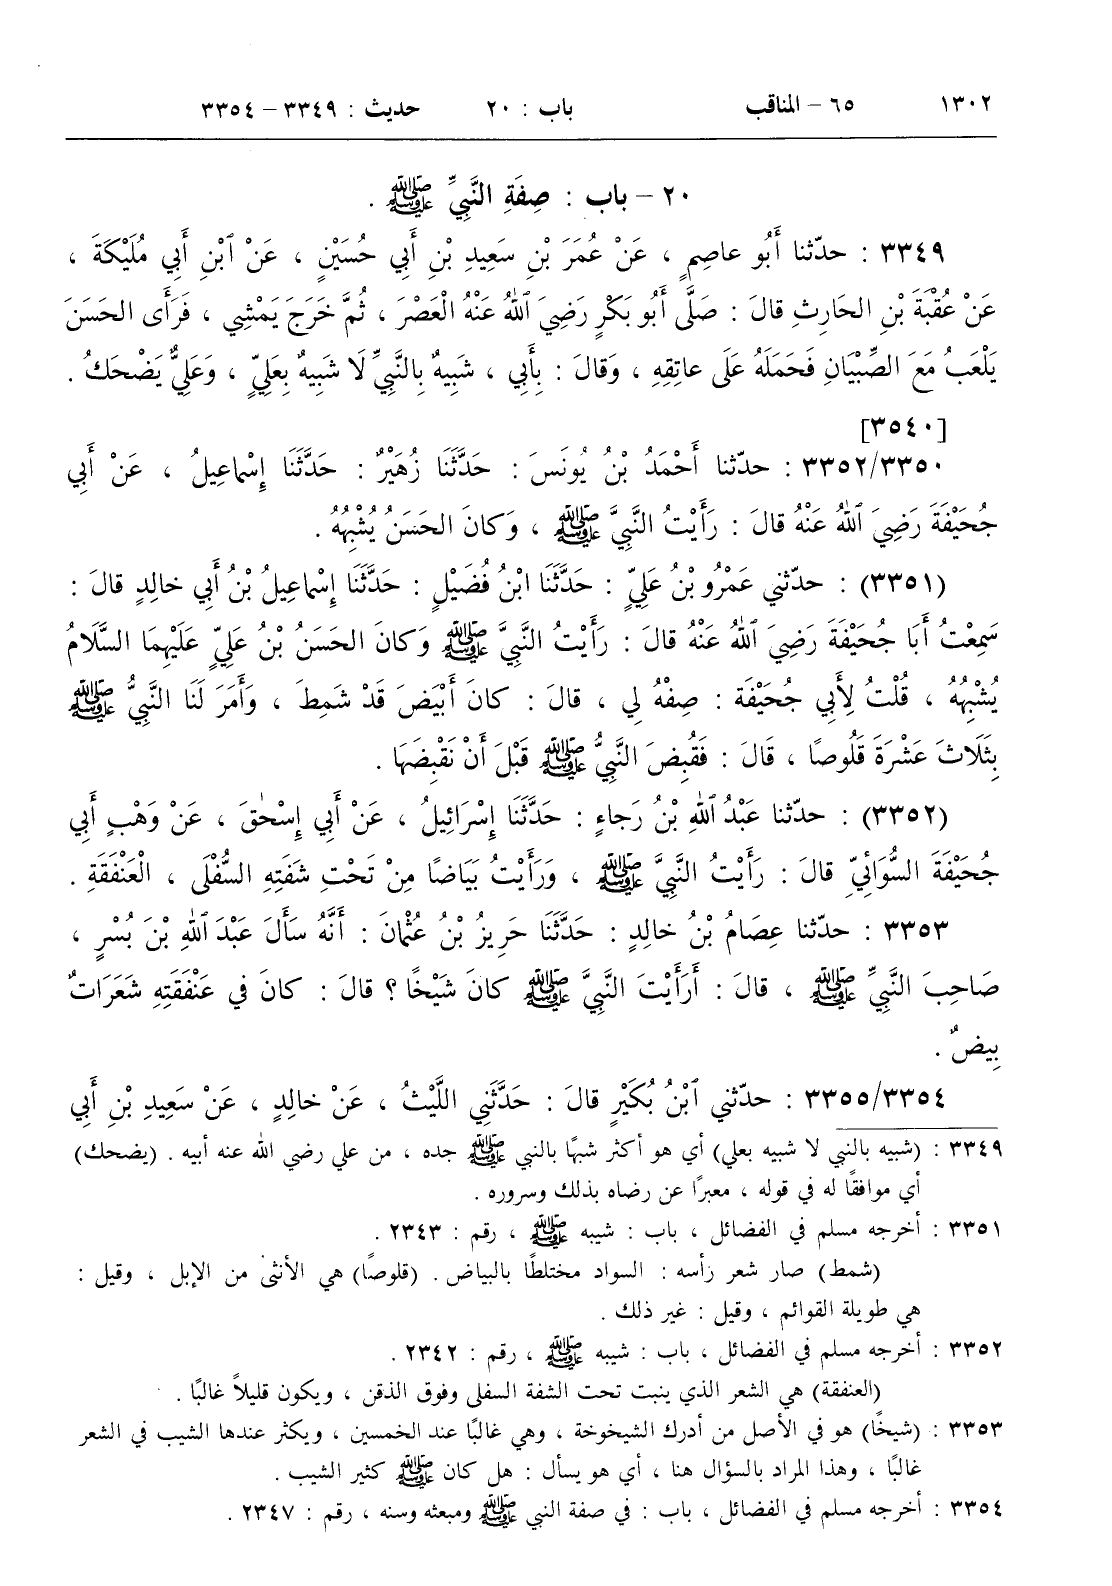 ١٣٠٢ ٦٥ – المناقب باب : ٢٠ حديث : ٣٣٤٩ – ٣٣٥٤
٢٠ – باب : صِفَةِ النَّبِيِّ ﷺ .
٣٣٤٩ : حدّثنا أَبُو عاصِمٍ ، عَنْ عُمَرَ بْنِ سَعِيدِ بْنِ أَبِي حُسَيْنٍ ، عَنْ ٱبْنِ أَبِي مُلَيْكَةَ ،
عَنْ عُقْبَةَ بْنِ الحَارِثِ قالَ : صَلَّى أَبُو بَكْرٍ رَضِيَ ٱللهُ عَنْهُ الْعَصْرَ ، ثُمَّ خَرَجَ يَمْشِي ، فَرَأَى الحَسَنَ
يَلْعَبُ مَعَ الصِّبْيَانِ فَحَمَلَهُ عَلَى عاتِقِهِ ، وَقالَ : بِأَبِي ، شَبِيهٌ بِالنَّبِيِّ لَا شَبِيهٌ بِعَلِيٍّ ، وَعَلِيٌّ يَضْحَكُ .
[٣٥٤٠]
٣٣٥٢/٣٣٥٠ : حدّثنا أَحْمَدُ بْنُ يُونَسَ : حَدَّثَنَا زُهَيْرٌ : حَدَّثَنَا إِسْماعِيلُ ، عَنْ أَبِي
جُحَيْفَةَ رَضِيَ ٱللهُ عَنْهُ قالَ : رَأَيْتُ النَّبِيَّ ﷺ ، وَكانَ الحَسَنُ يُشْبِهُهُ .
(٣٣٥١) : حدّثني عَمْرُو بْنُ عَلِيٍّ : حَدَّثَنَا ابْنُ فُضَيْلٍ : حَدَّثَنَا إِسْماعِيلُ بْنُ أَبِي خالِدٍ قالَ :
سَمِعْتُ أَبَا جُحَيْفَةَ رَضِيَ ٱللهُ عَنْهُ قالَ : رَأَيْتُ النَّبِيَّ ﷺ وَكانَ الحَسَنُ بْنُ عَلِيٍّ عَلَيْهِمَا السَّلَامُ
يُشْبِهُهُ ، قُلْتُ لِأَبِي جُحَيْفَةَ : صِفْهُ لِي ، قالَ : كانَ أَبْيَضَ قَدْ شَمِطَ ، وَأَمَرَ لَنَا النَّبِيُّ ﷺ
بِثَلَاثَ عَشْرَةَ قَلُوصًا ، قَالَ : فَقُبِضَ النَّبِيُّ ﷺ قَبْلَ أَنْ نَقْبِضَهَا .
(٣٣٥٢) : حدّثنا عَبْدُ ٱللهِ بْنُ رَجاءٍ : حَدَّثَنَا إِسْرَائِيلُ ، عَنْ أَبِي إِسْحٰقَ ، عَنْ وَهْبٍ أَبِي
جُحَيْفَةَ السُّوَائِيِّ قالَ : رَأَيْتُ النَّبِيَّ ﷺ ، وَرَأَيْتُ بَيَاضًا مِنْ تَحْتِ شَفَتِهِ السُّفْلَى ، الْعَنْفَقَةِ .
٣٣٥٣ : حدّثنا عِصَامُ بْنُ خالِدٍ : حَدَّثَنَا حَرِيزُ بْنُ عُثْمانَ : أَنَّهُ سَأَلَ عَبْدَ ٱللهِ بْنَ بُسْرٍ ،
صَاحِبَ النَّبِيِّ ﷺ ، قالَ : أَرَأَيْتَ النَّبِيَّ ﷺ كانَ شَيْخًا ؟ قالَ : كانَ فِي عَنْفَقَتِهِ شَعَرَاتٌ
بِيضٌ .
٣٣٥٥/٣٣٥٤ : حدّثني ٱبْنُ بُكَيْرٍ قالَ : حَدَّثَنِي اللَّيْثُ ، عَنْ خالِدٍ ، عَنْ سَعِيدِ بْنِ أَبِي
٣٣٤٩ : (شبيه بالنبي لا شبيه بعلي) أي هو أكثر شبهًا بالنبي ﷺ جده ، من علي رضي الله عنه أبيه . (يضحك)
أي موافقًا له في قوله ، معبرًا عن رضاه بذلك وسروره .
٣٣٥١ : أخرجه مسلم في الفضائل ، باب : شيبه ﷺ ، رقم : ٢٣٤٣ .
(شمط) صار شعر رأسه : السواد مختلطًا بالبياض . (قلوصًا) هي الأنثى من الإبل ، وقيل :
هي طويلة القوائم ، وقيل : غير ذلك .
٣٣٥٢ : أخرجه مسلم في الفضائل ، باب : شيبه ﷺ ، رقم : ٢٣٤٢ .
(العنفقة) هي الشعر الذي ينبت تحت الشفة السفلى وفوق الذقن ، ويكون قليلاً غالبًا .
٣٣٥٣ : (شيخًا) هو في الأصل من أدرك الشيخوخة ، وهي غالبًا عند الخمسين ، ويكثر عندها الشيب في الشعر
غالبًا ، وهذا المراد بالسؤال هنا ، أي هو يسأل : هل كان ﷺ كثير الشيب .
٣٣٥٤ : أخرجه مسلم في الفضائل ، باب : في صفة النبي ﷺ ومبعثه وسنه ، رقم : ٢٣٤٧ .